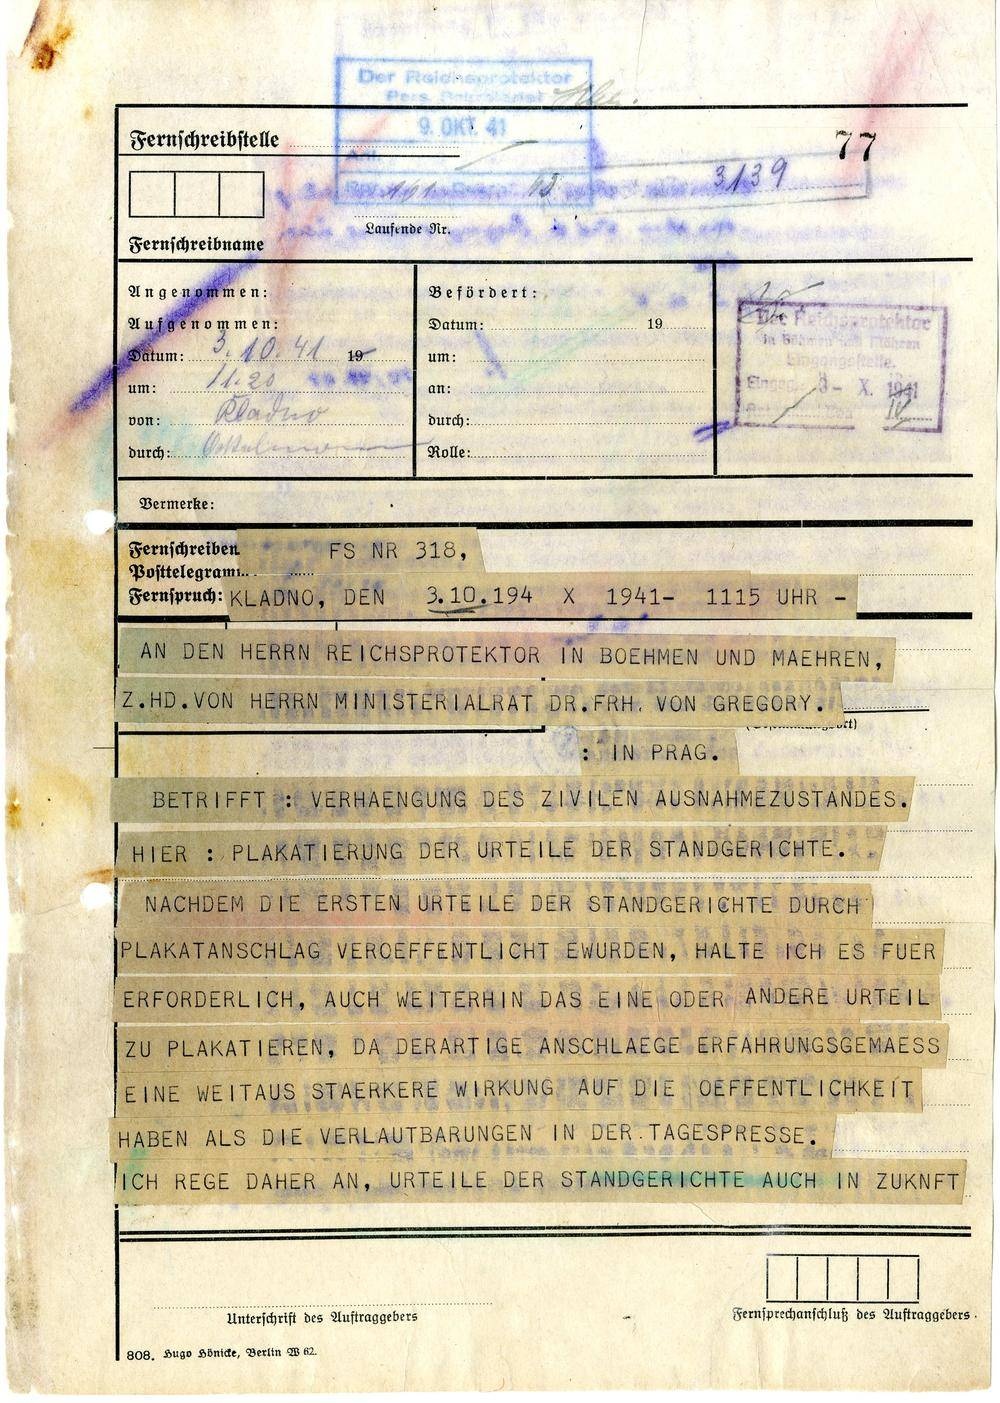 Der Reichsprotektor
9. OKT. 41
77
Fernschreibstelle
3139
Laufende Nr.
Fernschreibname
Angenommen:
Aufgenommen:
Datum: 3.10.41 19
um: 11.20
von: Kladno
durch:
Befördert:
Datum: 19
um:
an:
durch:
Rolle:
Der Reichsprotektor
in Böhmen und Mähren
Eingangsstelle.
X. 1941
Vermerke:
Fernschreiben FS NR 318,
Posttelegramm
Fernspruch: KLADNO, DEN 3.10.194 X 1941- 1115 UHR -
AN DEN HERRN REICHSPROTEKTOR IN BOEHMEN UND MAEHREN,
Z.HD.VON HERRN MINISTERIALRAT DR.FRH. VON GREGORY.
: IN PRAG.
BETRIFFT : VERHAENGUNG DES ZIVILEN AUSNAHMEZUSTANDES.
HIER : PLAKATIERUNG DER URTEILE DER STANDGERICHTE.
NACHDEM DIE ERSTEN URTEILE DER STANDGERICHTE DURCH
PLAKATANSCHLAG VEROEFFENTLICHT EWURDEN, HALTE ICH ES FUER
ERFORDERLICH, AUCH WEITERHIN DAS EINE ODER ANDERE URTEIL
ZU PLAKATIEREN, DA DERARTIGE ANSCHLAEGE ERFAHRUNGSGEMAESS
EINE WEITAUS STAERKERE WIRKUNG AUF DIE OEFFENTLICHKEIT
HABEN ALS DIE VERLAUTBARUNGEN IN DER TAGESPRESSE.
ICH REGE DAHER AN, URTEILE DER STANDGERICHTE AUCH IN ZUKNFT
Unterschrift des Auftraggebers
Fernsprechanschluß des Auftraggebers
808. Hugo Hönicke, Berlin W 62.